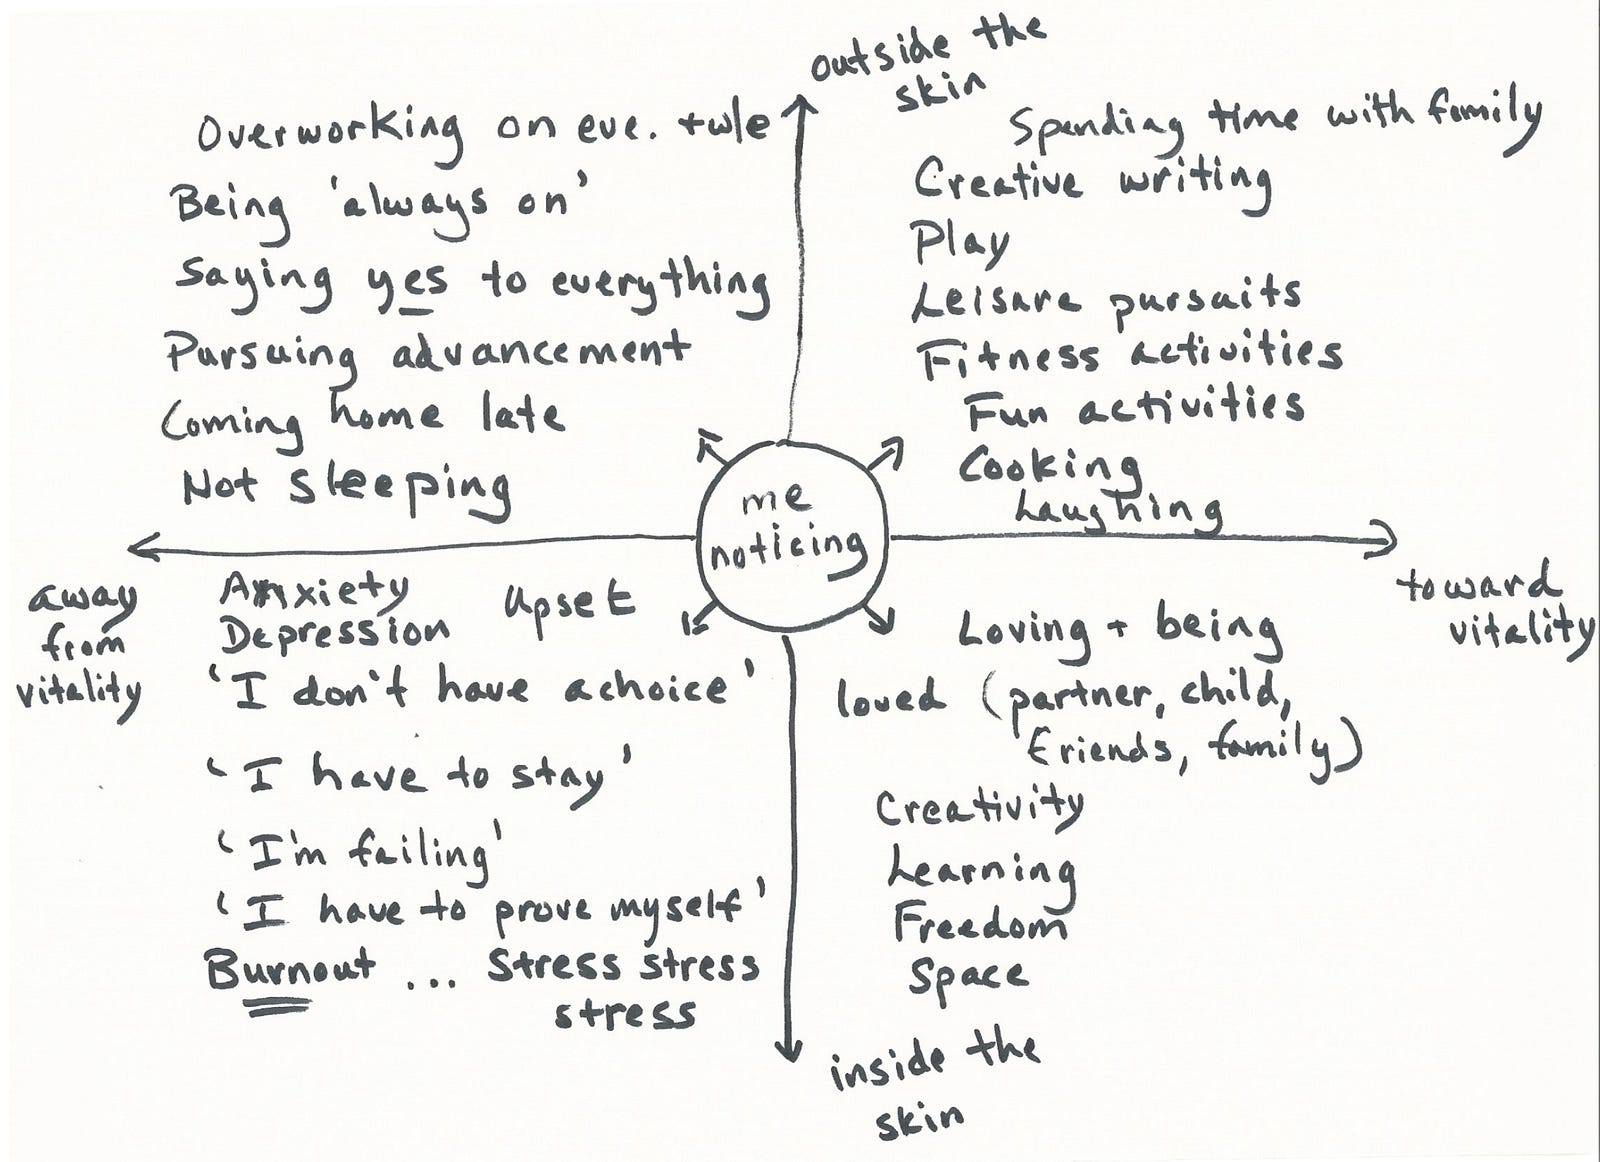 outside the
skin
Overworking on eve. + w/e
Being 'always on'
Saying yes to everything
Pursuing advancement
Coming home late
Not sleeping
Spending time with family
Creative writing
Play
Leisure pursuits
Fitness activities
Fun activities
Cooking
Laughing
me
noticing
away
from
vitality
toward
vitality
Anxiety
Upset
Depression
'I don't have a choice'
'I have to stay'
'I'm failing'
'I have to prove myself'
Burnout ... Stress stress
stress
Loving + being
loved (partner, child,
friends, family)
Creativity
Learning
Freedom
Space
inside the
skin